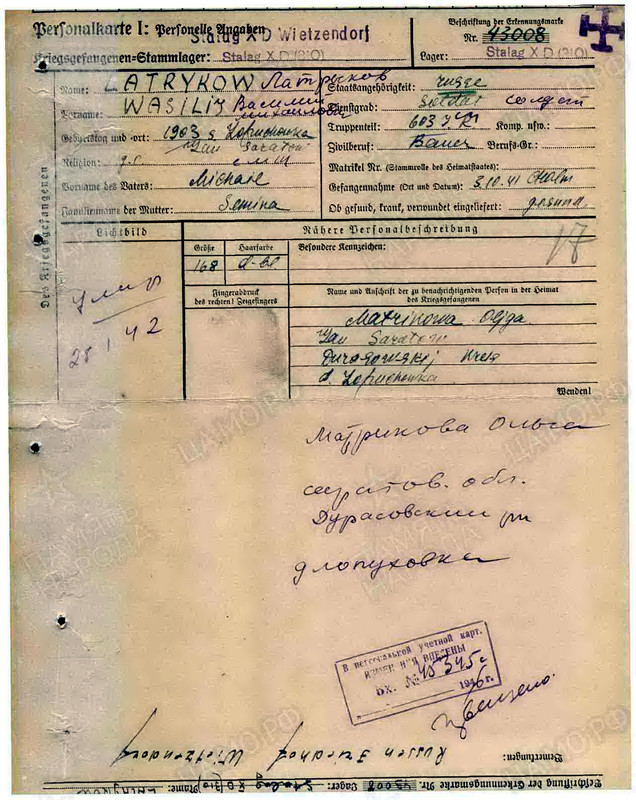 Personalkarte I: Personelle Angaben
Stalag X D Wietzendorf
Kriegsgefangenen-Stammlager: Stalag X D (310)
Beschriftung der Erkennungsmarke
Nr. 43008
Lager: Stalag X D (310)
Des Kriegsgefangenen
Name: LATRYKOW Латрыков
Vorname: WASILIJ Василий Михайлович
Geburtstag und -ort: 1903 Lopuchowka
Gau Saratow
Religion:
Vorname des Vaters: Michael
Familienname der Mutter: Semina
Staatsangehörigkeit: russe
Dienstgrad: Soldat солдат
Truppenteil: 603 Komp. usw.:
Zivilberuf: Bauer Berufs-Gr.:
Matrikel Nr. (Stammrolle des Heimatstaates):
Gefangennahme (Ort und Datum): 3.10.41 Cholm
Ob gesund, krank, verwundet eingeliefert: gesund
Lichtbild
Nähere Personalbeschreibung
Größe Haarfarbe Besondere Kennzeichen:
168 d-bl
17
Fingerabdruck
des rechten! Zeigefingers
Name und Anschrift der zu benachrichtigenden Person in der Heimat
des Kriegsgefangenen
Matrikowa Olga
Gau Saratow
Kreis
d. Lopuchowka
Wenden!
умер
25 1 42
Матрикова Ольга
саратов. обл.
Дурасовский рн
д лопуховка
В персональной учетной карт.
ВНЕСЕНЫ
Вх. № 45345с
1946 г.
Bemerkungen:
Russen Friedhof
Wietzendorf
Beschriftung der Erkennungsmarke Nr. 43008 Lager: Stalag XD/310 Name: Latrykow
ЦАМО.РФ
ПАМЯТЬ НАРОДА